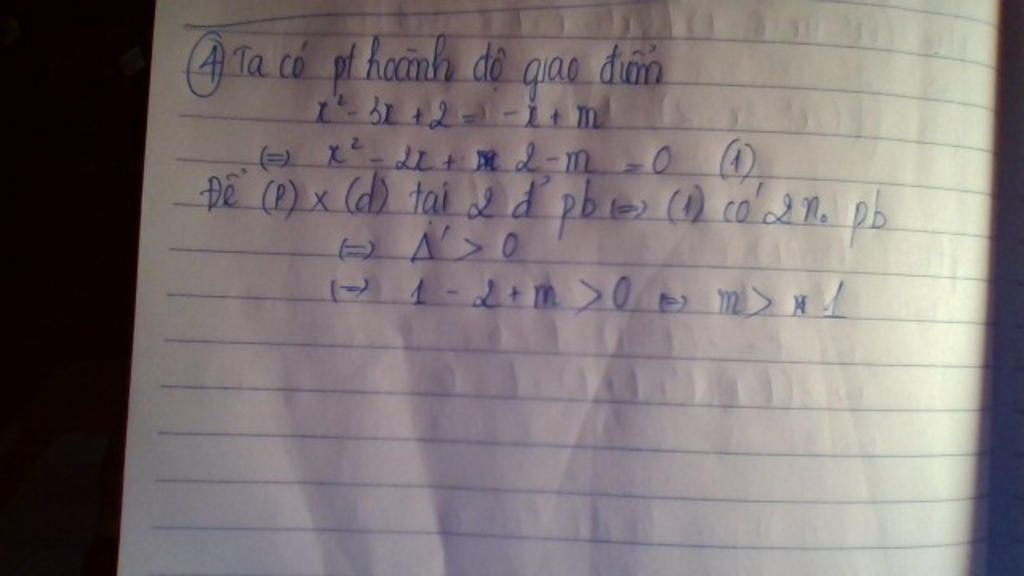 ④ Ta có pt hoành độ giao điểm
x² - 3x + 2 = -x + m
⇔ x² - 2x + 2 - m = 0 (1)
Để (P) x (d) tại 2 đ' pb ⇔ (1) có 2 n. pb
⇔ Δ' > 0
⇔ 1 - 2 + m > 0 ⇔ m > 1